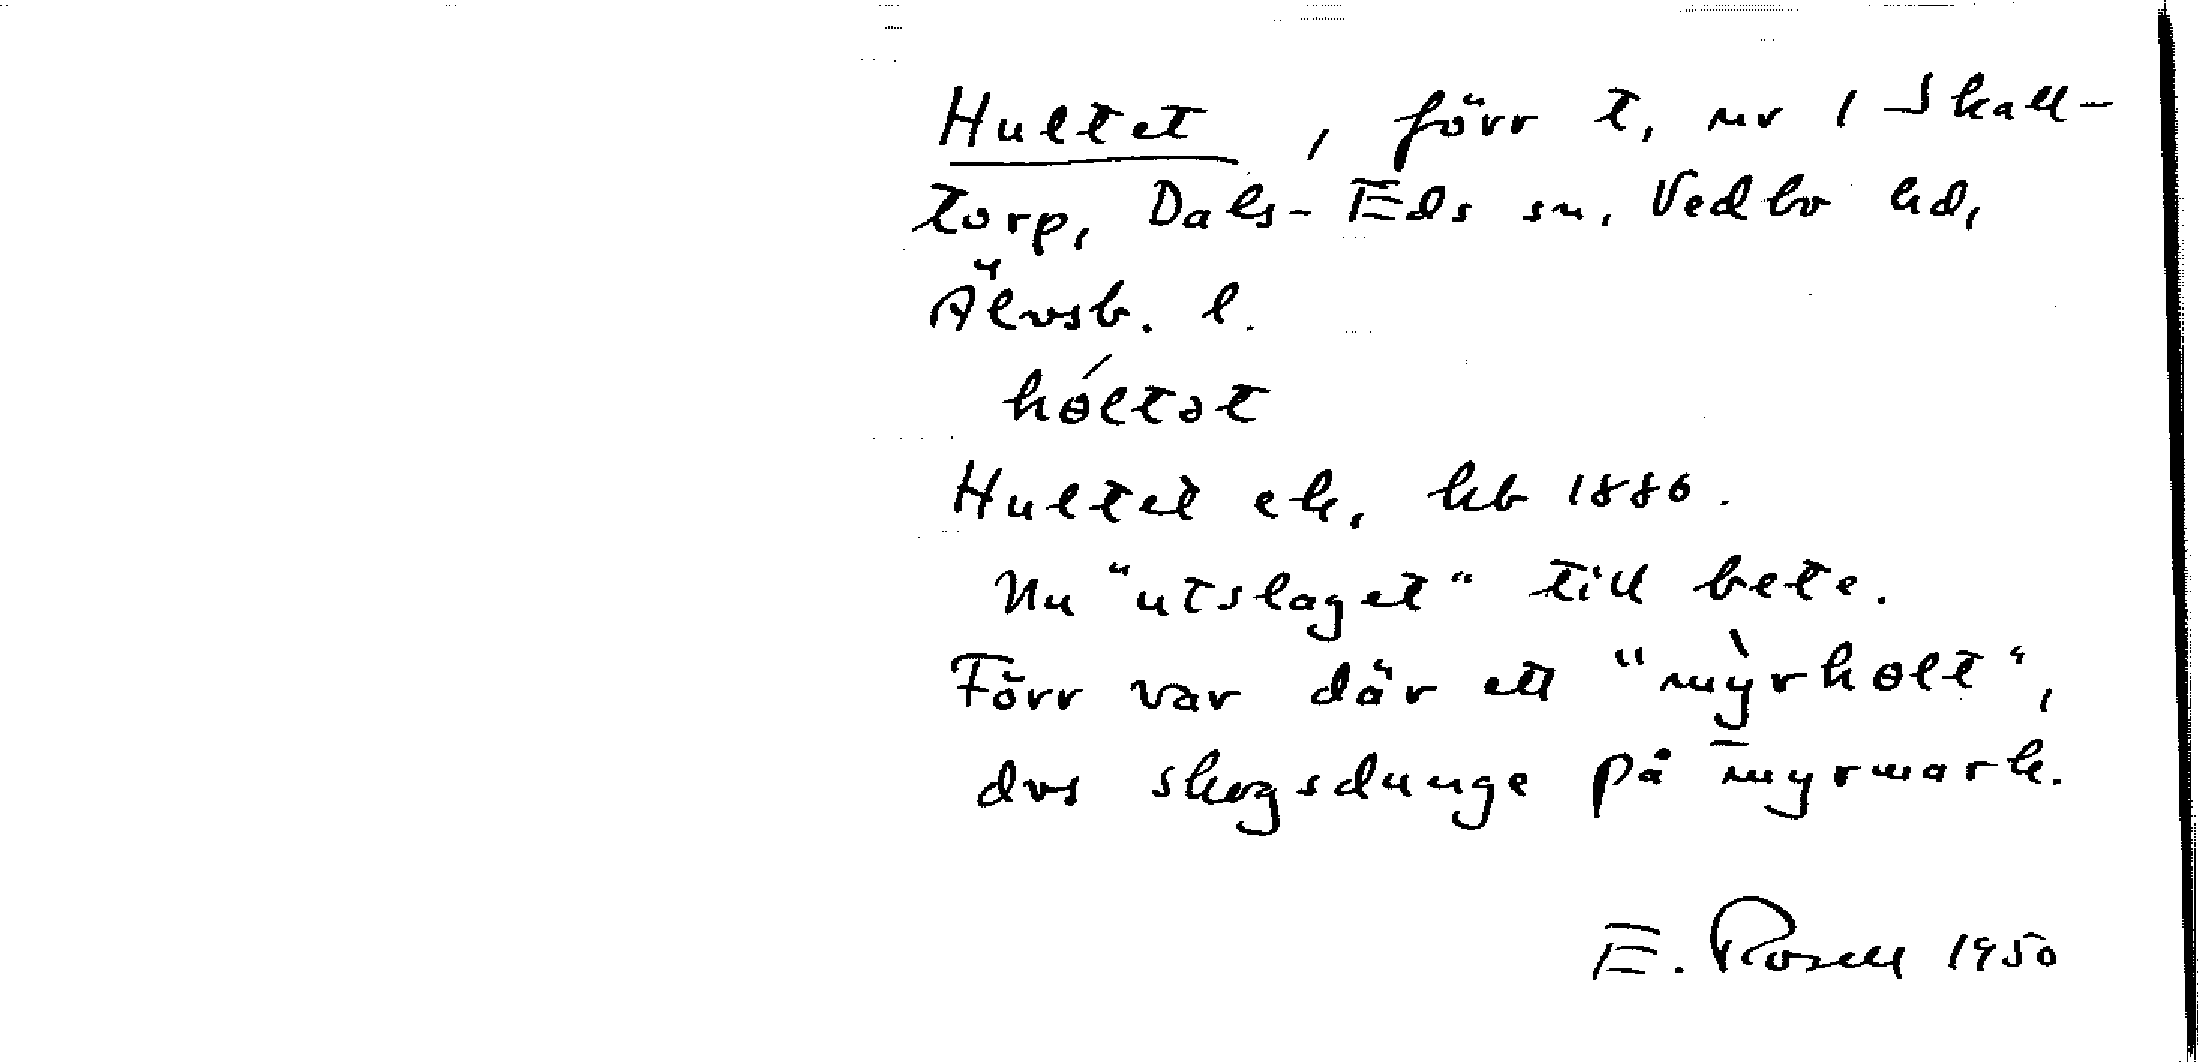 Hultet, förr t, nr 1 Skall-
torp, Dals-Eds sn, Vedbo hd,
Älvsb. l.
hóltət
Hultet ek, hb 1886.
Nu "utslaget" till bete.
Förr var där ett "mỳrhɵlt",
dvs skogsdunge på myrmark.
E. Rosell 1950